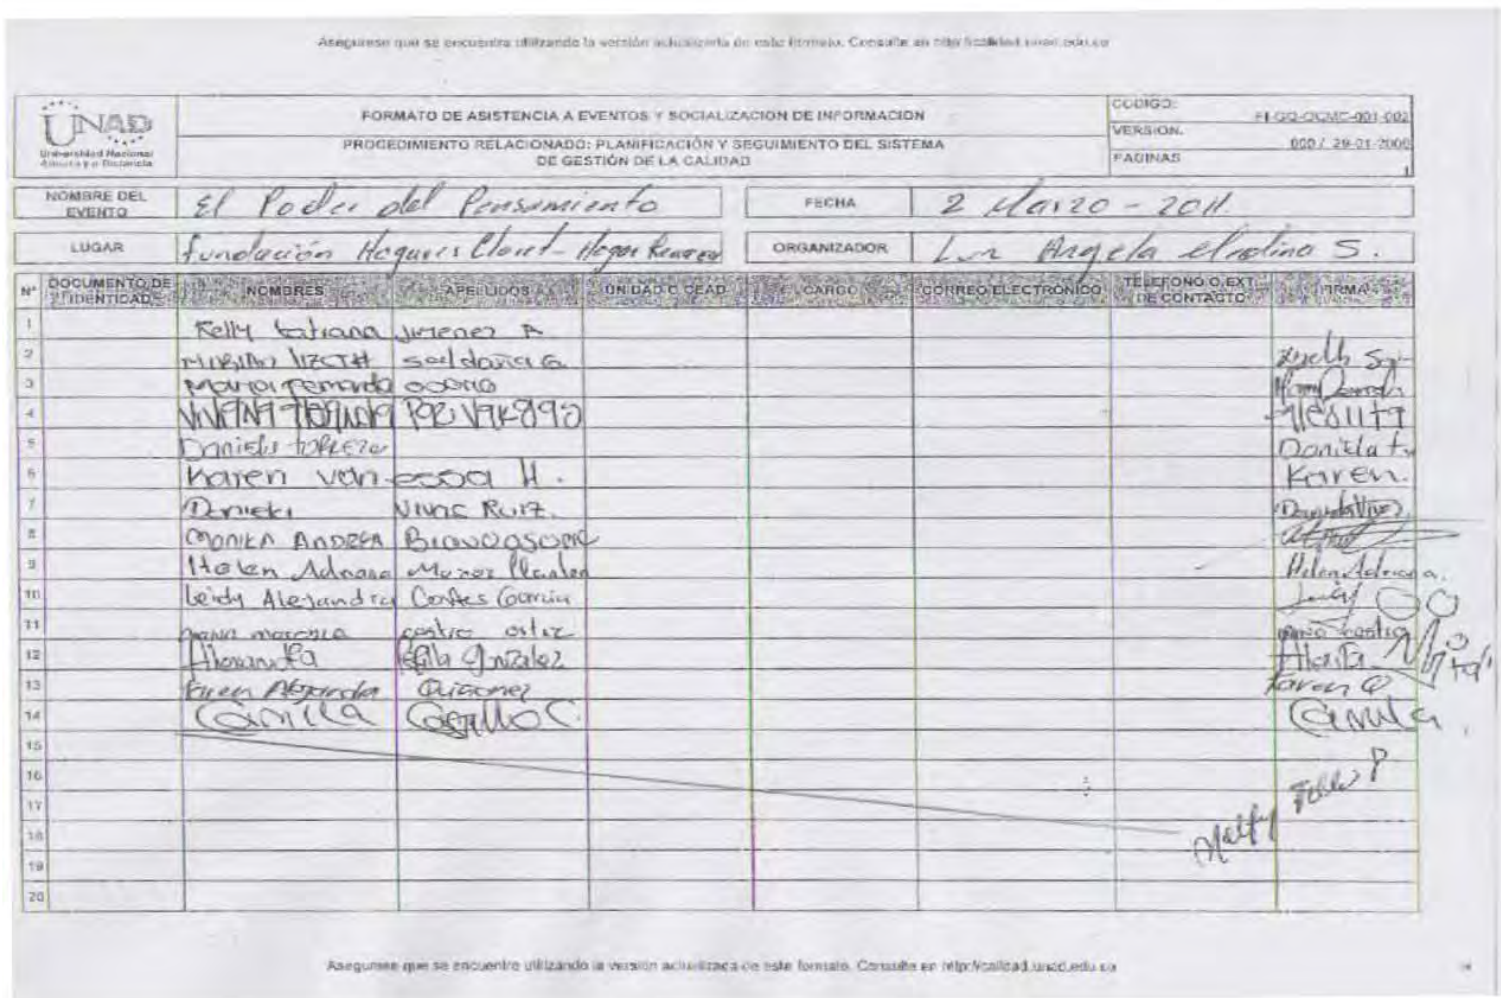 Asegurese que se encuentra utilizando la versión actualizada de este formato. Consulte en http://calidad.unad.edu.co
UNAD
Universidad Nacional
Abierta y a Distancia
FORMATO DE ASISTENCIA A EVENTOS Y SOCIALIZACION DE INFORMACION
PROCEDIMIENTO RELACIONADO: PLANIFICACIÓN Y SEGUIMIENTO DEL SISTEMA
DE GESTIÓN DE LA CALIDAD
CODIGO: FI-GQ-OCMC-001-002
VERSION.
PAGINAS 1
NOMBRE DEL EVENTO El Poder del Pensamiento FECHA 2 Marzo - 2011.
LUGAR Fundación Hogares Claret - Hogar ORGANIZADOR Angela S.
N° DOCUMENTO DE IDENTIDAD NOMBRES APELLIDOS UNIDAD O CEAD CARGO CORREO ELECTRÓNICO TELEFONO O EXT. DE CONTACTO FIRMA
1 Kelly tatiana Jimenez A
2 saldaña G
3 Maria Fernanda osorio
4
5 Daniela Daniela
6 Karen van essa H. Karen.
7 Daniela Vivas Ruiz.
8 MONIKA ANDREA
9 Helen Adriana Muñoz Helen Adriana.
10 Leidy Alejandra Cortes Garcia
11 castro ortiz castro
12 Alexandra gonzalez
13 Karen Alejandra Quiñonez Karen Q
14 Camila Castillo C. Camila
15
16
17
18
19
20
Asegurese que se encuentra utilizando la versión actualizada de este formato. Consulte en http://calidad.unad.edu.co